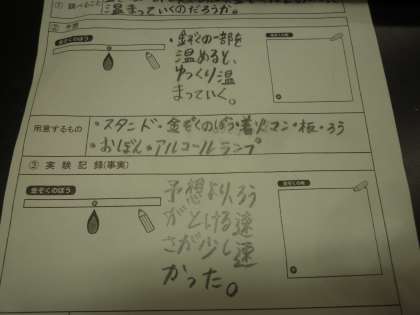 ① 調べること
温まっていくのだろうか。
② 予想
金ぞくのぼう
・金ぞくの一部を
温めると、
ゆっくり温
まっていく。
金ぞくの板
用意するもの
・スタンド・金ぞくのぼう・着火マン・板・ろう
・おぼん・アルコールランプ
③ 実験記録(事実)
金ぞくのぼう
予想より、ろう
がとける速
さが少し速
かった。
金ぞくの板